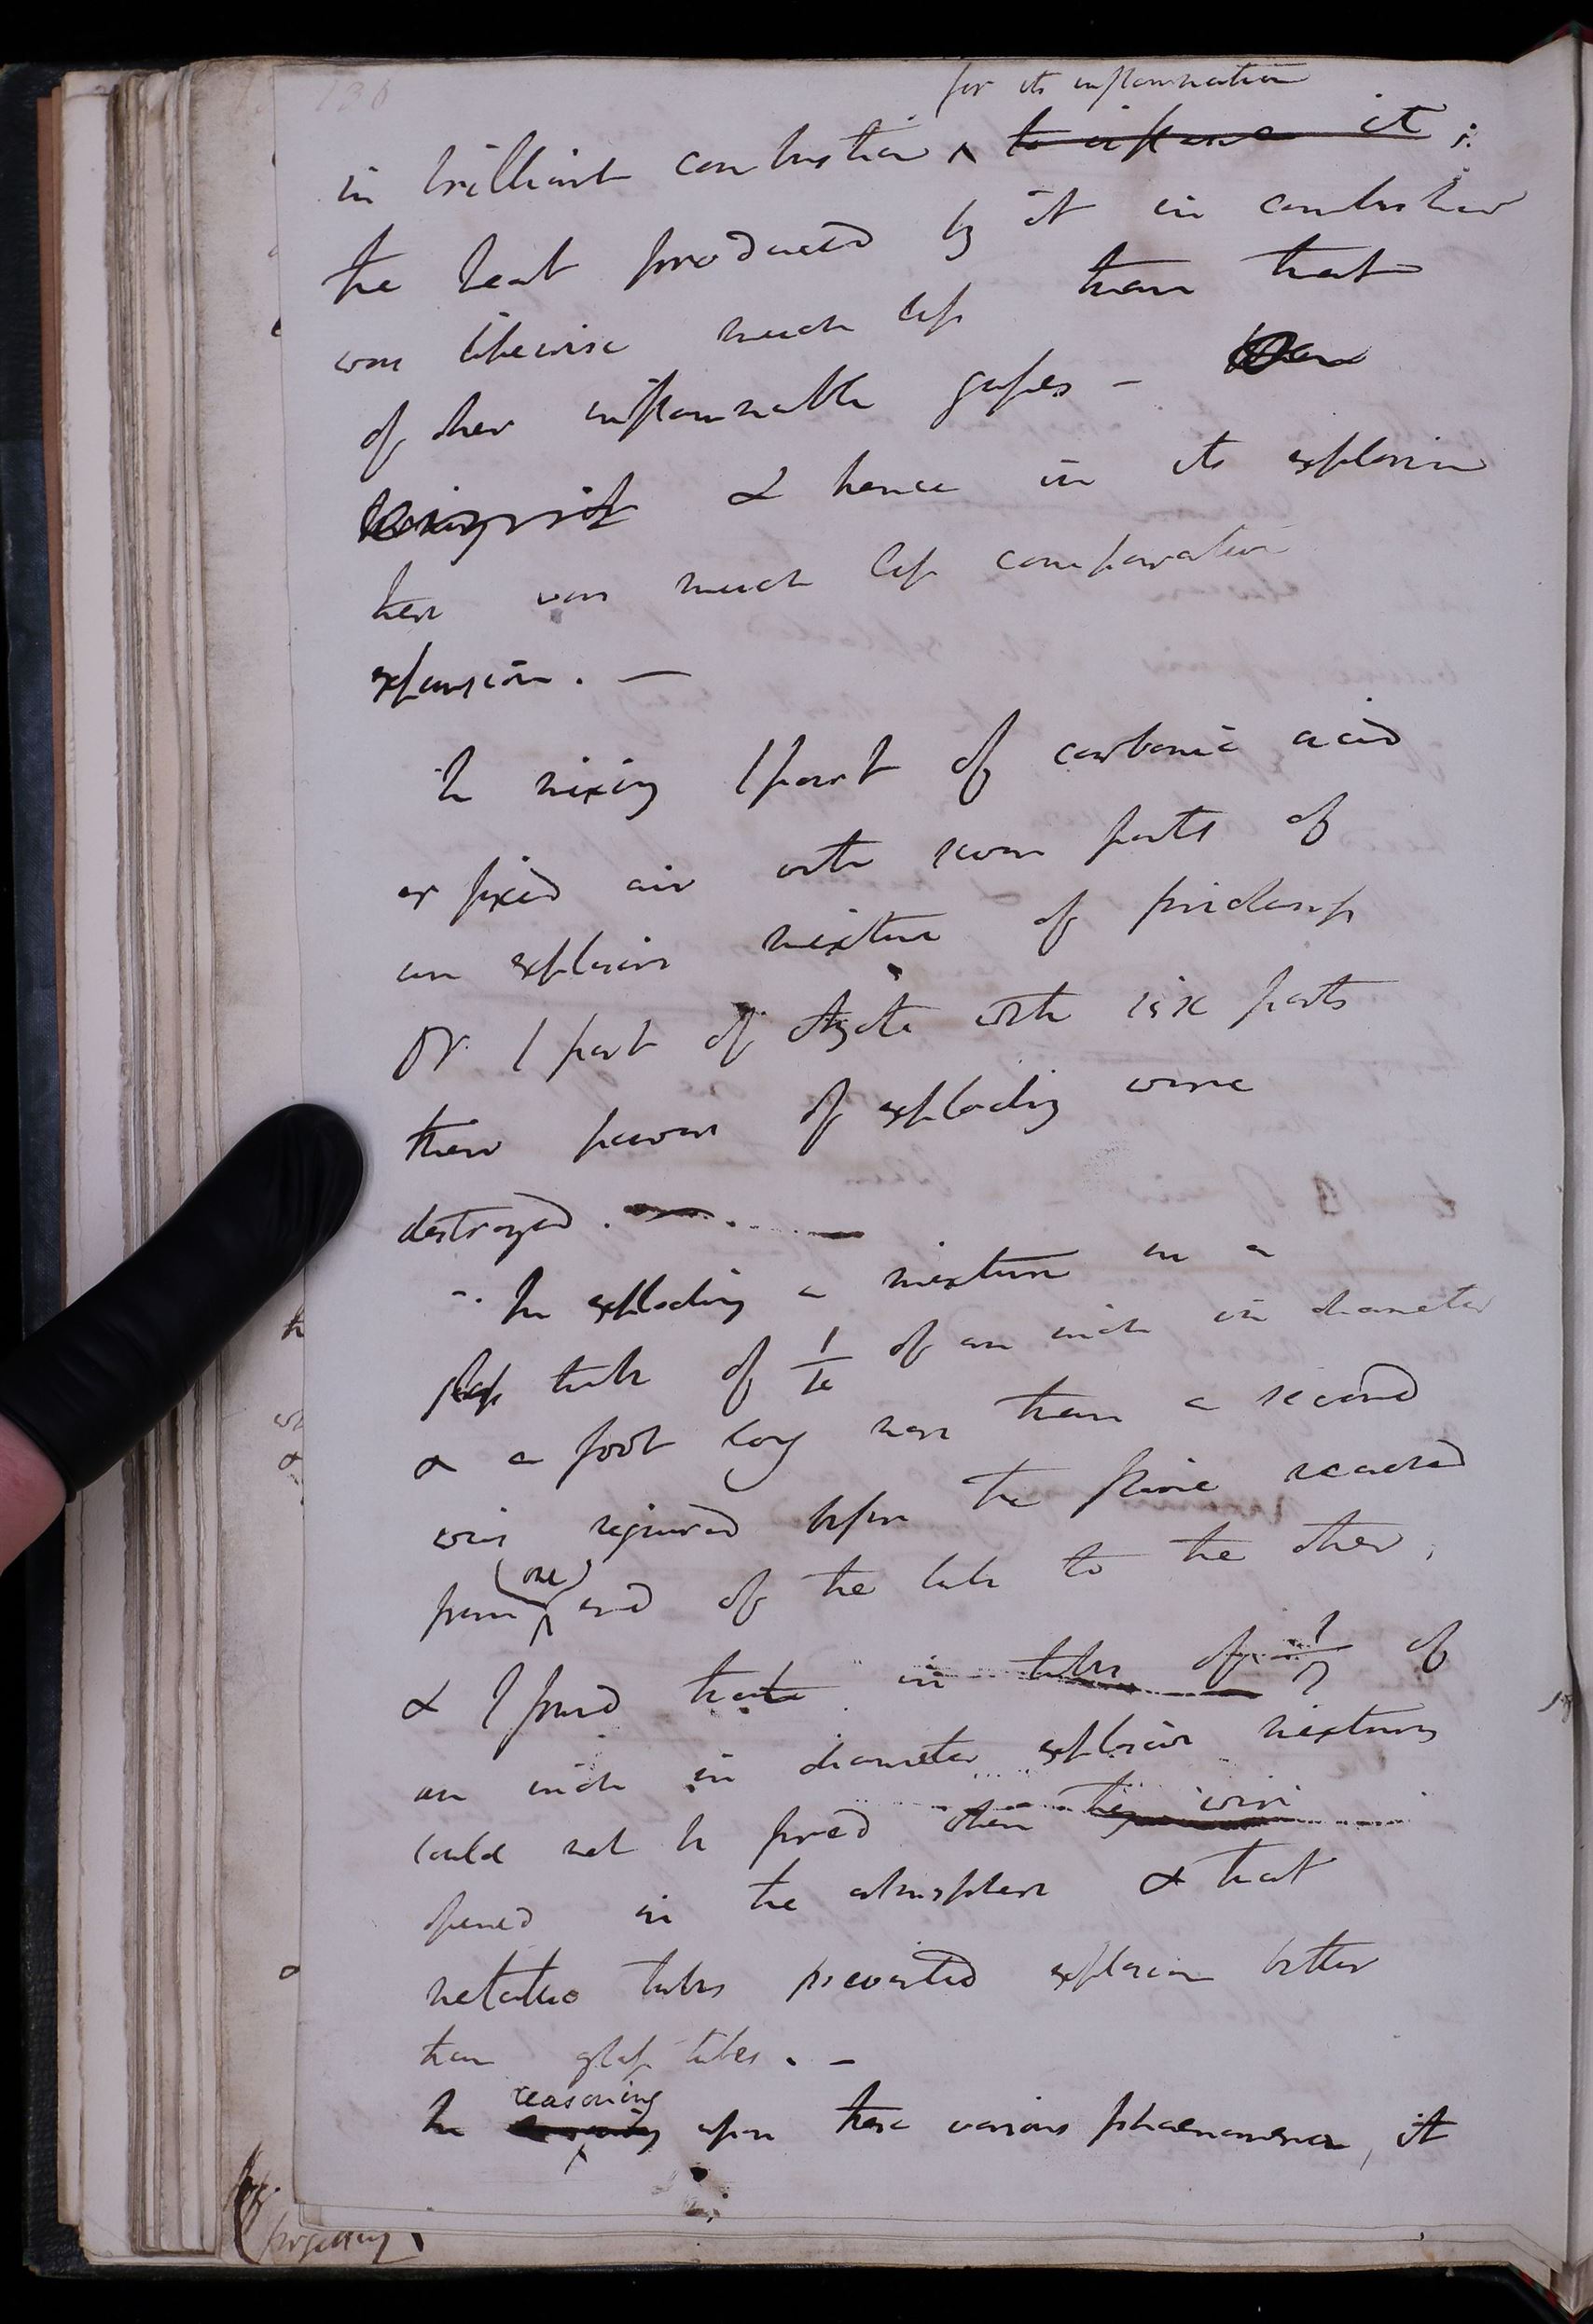 136
for its inflammation
in brilliant combustion ^ to inflame it ;
the heat produced by it in combustion
was likewise much less than that
of other inflammable gases -
being it & hence in its explosion
there was much less comparative
expansion. —
In mixing 1 part of carbonic acid
or fixed air with seven parts of
an explosive mixture of firedamp
or 1 part of Azote with six parts
their powers of exploding were
destroyed. —
In exploding a mixture in a
glass tube of 1/4 of an inch in diameter
& a foot long more than a second
was required before the flame reached
(one)
from ^ end of the tube to the other,
& I found that in tubes of 1/7 of
an inch in diameter explosive mixtures
could not be fired when they were
opened in the atmosphere & that
metallic tubes prevented explosion better
than glass tubes. —
reasoning
In ^ upon these various phaenomena, it